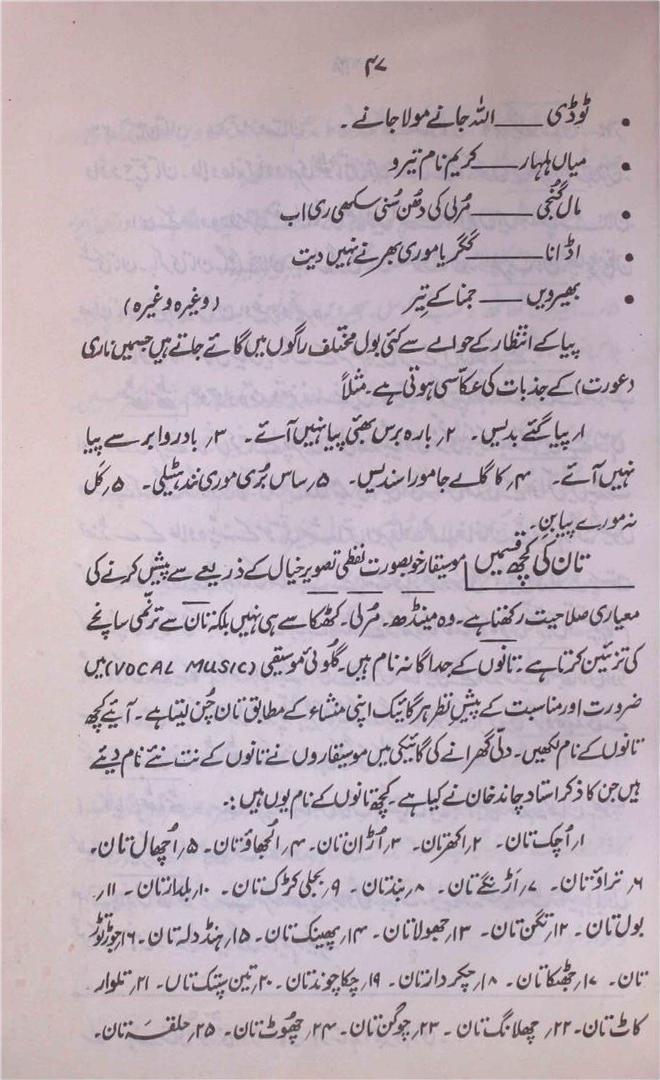 ۴۷
• ٹوڈی ——— اللہ جانے مولا جانے ۔
• میاں ملہار ——— کریم نام تیرو
• مال گُنجی ——— مُرلی کی دُھن سُنی سکھی ری اب
• اڈانا ——— گگریا موری بھرنے نہیں دیت
• بھیرویں ——— جمنا کے تِیر (وغیرہ وغیرہ)
پیا کے انتظار کے حوالے سے کئی بول مختلف راگوں میں گائے جاتے ہیں جسمیں ناری
(عورت) کے جذبات کی عکّاسی ہوتی ہے۔ مثلاً
۱؍ پیا گئے بدیس۔ ۲؍ بارہ برس بھئی پیا نہیں آئے۔ ۳؍ بادروا برسے پیا
نہیں آئے۔ ۴؍ کاگلے جا مورا سندیس۔ ۵؍ ساس بُری موری نند ہٹیلی۔ ۵؍ کَل
نہ مورے پیا بِن۔
تان کی کچھ قسمیں موسیقار خوبصورت لفظی تصویر خیال کے ذریعے سے پیش کرنے کی
معیاری صلاحیت رکھتا ہے۔ وہ مینڈھ۔ مُرلی۔ کھٹکا سے ہی نہیں بلکہ تان سے ترنّمی سانچے
کی تزئین کرتا ہے۔ تانوں کے جداگانہ نام ہیں۔ گلُوئی موسیقی (VOCAL MUSIC) میں
ضرورت اور مناسبت کے پیشِ نظر ہر گائیک اپنی منشاء کے مطابق تان چُن لیتا ہے۔ آیئے کچھ
تانوں کے نام لکھیں۔ دلّی گھرانے کی گائیکی میں موسیقاروں نے تانوں کے نت نئے نام دیئے
ہیں جن کا ذکر استاد چاند خان نے کیا ہے۔ کچھ تانوں کے نام یوں ہیں:۔
۱؍ اُچک تان۔ ۲؍ اکھر تان۔ ۳؍ اُڑان تان۔ ۴؍ اُلجھاؤ تان۔ ۵؍ اُچھال تان۔
۶؍ تراوٹ تان۔ ۷؍ اَڑنگے تان۔ ۸؍ بند تان۔ ۹؍ بجلی کڑک تان۔ ۱۰؍ بلدار تان۔ ۱۱؍
بول تان۔ ۱۲؍ تگن تان۔ ۱۳؍ جھولا تان۔ ۱۴؍ پھینک تان۔ ۱۵؍ ہنڈولہ تان۔ ۱۶؍ جوڑ توڑ
تان۔ ۱۷؍ جھٹکا تان۔ ۱۸؍ چکردار تان۔ ۱۹؍ چکا چوند تان۔ ۲۰؍ تین سپتک تاں۔ ۲۱؍ تلوار
کاٹ تان۔ ۲۲؍ چھلانگ تان۔ ۲۳؍ چوگن تان۔ ۲۴؍ چھوٹ تان۔ ۲۵؍ حلقہ تان۔